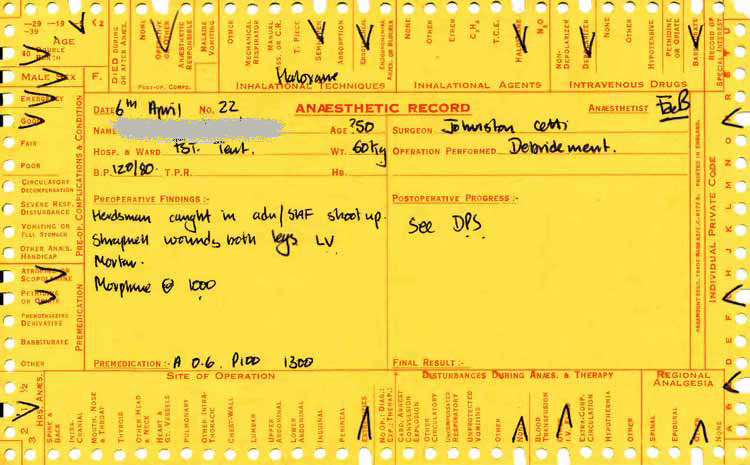 –29 –19 –2
–39
40 DOUBLE
DEPTH
AGE
DIED DURING
OR AFTER ANÆS.
NONE
OPERATIVE
OR OTHER
ANÆSTHETIC
RESPONSIBLE
MALAISE
VOMITING
OTHER
POST-OP. COMPS.
OTHER
MECHANICAL
RESPIRATOR
MANUAL
ASS. OR C.R.
T. PIECE
SEMI-
ABSORPTION
ENDOBRONCHIAL
ACHS. OR BLOCKER
NONE
OTHER
ETHER
C₂H₄
T.C.E.
N₂O
NON-
DEPOLARIZER
DEPOLARIZER
NONE
OTHER
HYPOTENSIVE
PETHIDINE
OR OPIATE
RECORD OF
SPECIAL INTEREST
MALE SEX F.
Haloxane
INHALATIONAL TECHNIQUES
INHALATIONAL AGENTS
INTRAVENOUS DRUGS
EMERGENCY
GOOD
FAIR
POOR
CIRCULATORY
DECOMPENSATION
SEVERE RESP.
DISTURBANCE
VOMITING OR
FULL STOMACH
OTHER ANÆS.
HANDICAP
PRE-OP. COMPLICATIONS & CONDITION
ATROPINE OR
SCOPOLAMINE
PETHIDINE
OR OPIATE
PHENOTHIAZINE
DERIVATIVE
BARBITURATE
OTHER
PREMEDICATION
DATE 6th April NO. 22 ANÆSTHETIC RECORD ANÆSTHETIST
NAME AGE ?50 SURGEON Johnston cetti
HOSP. & WARD FST. Tent. WT. 60kg OPERATION PERFORMED Debridement.
B.P. 120/80 T.P.R. HB.
PREOPERATIVE FINDINGS :- POSTOPERATIVE PROGRESS :-
Herdsman caught in adu/SAF shoot up. See DPS
Shrapnell wounds both legs LV
Mortar.
Morphine @ 1000
PREMEDICATION :- A 0.6. P100 1300 FINAL RESULT :-
INDIVIDUAL PRIVATE CODE
PRINTED IN ENGLAND.
SITE OF OPERATION
DISTURBANCES DURING ANÆS. & THERAPY
REGIONAL
ANALGESIA
3 2 1 ½
HRS. ANÆS.
SPINE &
BACK
INTRA-
CRANIAL
MOUTH, NOSE
& THROAT
THYROID
OTHER HEAD
& NECK
HEART &
GT. VESSELS
PULMONARY
OTHER INTRA-
THORACIC
CHEST-WALL
LUMBAR
UPPER
ABDOMINAL
LOWER
ABDOMINAL
INGUINAL
PERINEAL
EXTREMITIES
NO OP., DIAG.:
EXP., THERAP.:
CARD. ARREST
CONVULSION
EXPLOSION
OTHER
CIRCULATORY
UNEXPECTED
RESPIRATORY
UNPROTECTED
VOMITING
OTHER
NONE
BLOOD
TRANSFUSION
EXTRA-CORP.
CIRCULATION
HYPOTHERMIA
OTHER
SPINAL
EPIDURAL
OTHER
NONE